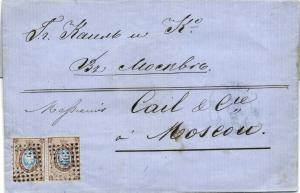 Гг. Каиль и Ко
Въ Москвѣ.
Messieurs
Cail & Cie
à Moscou.